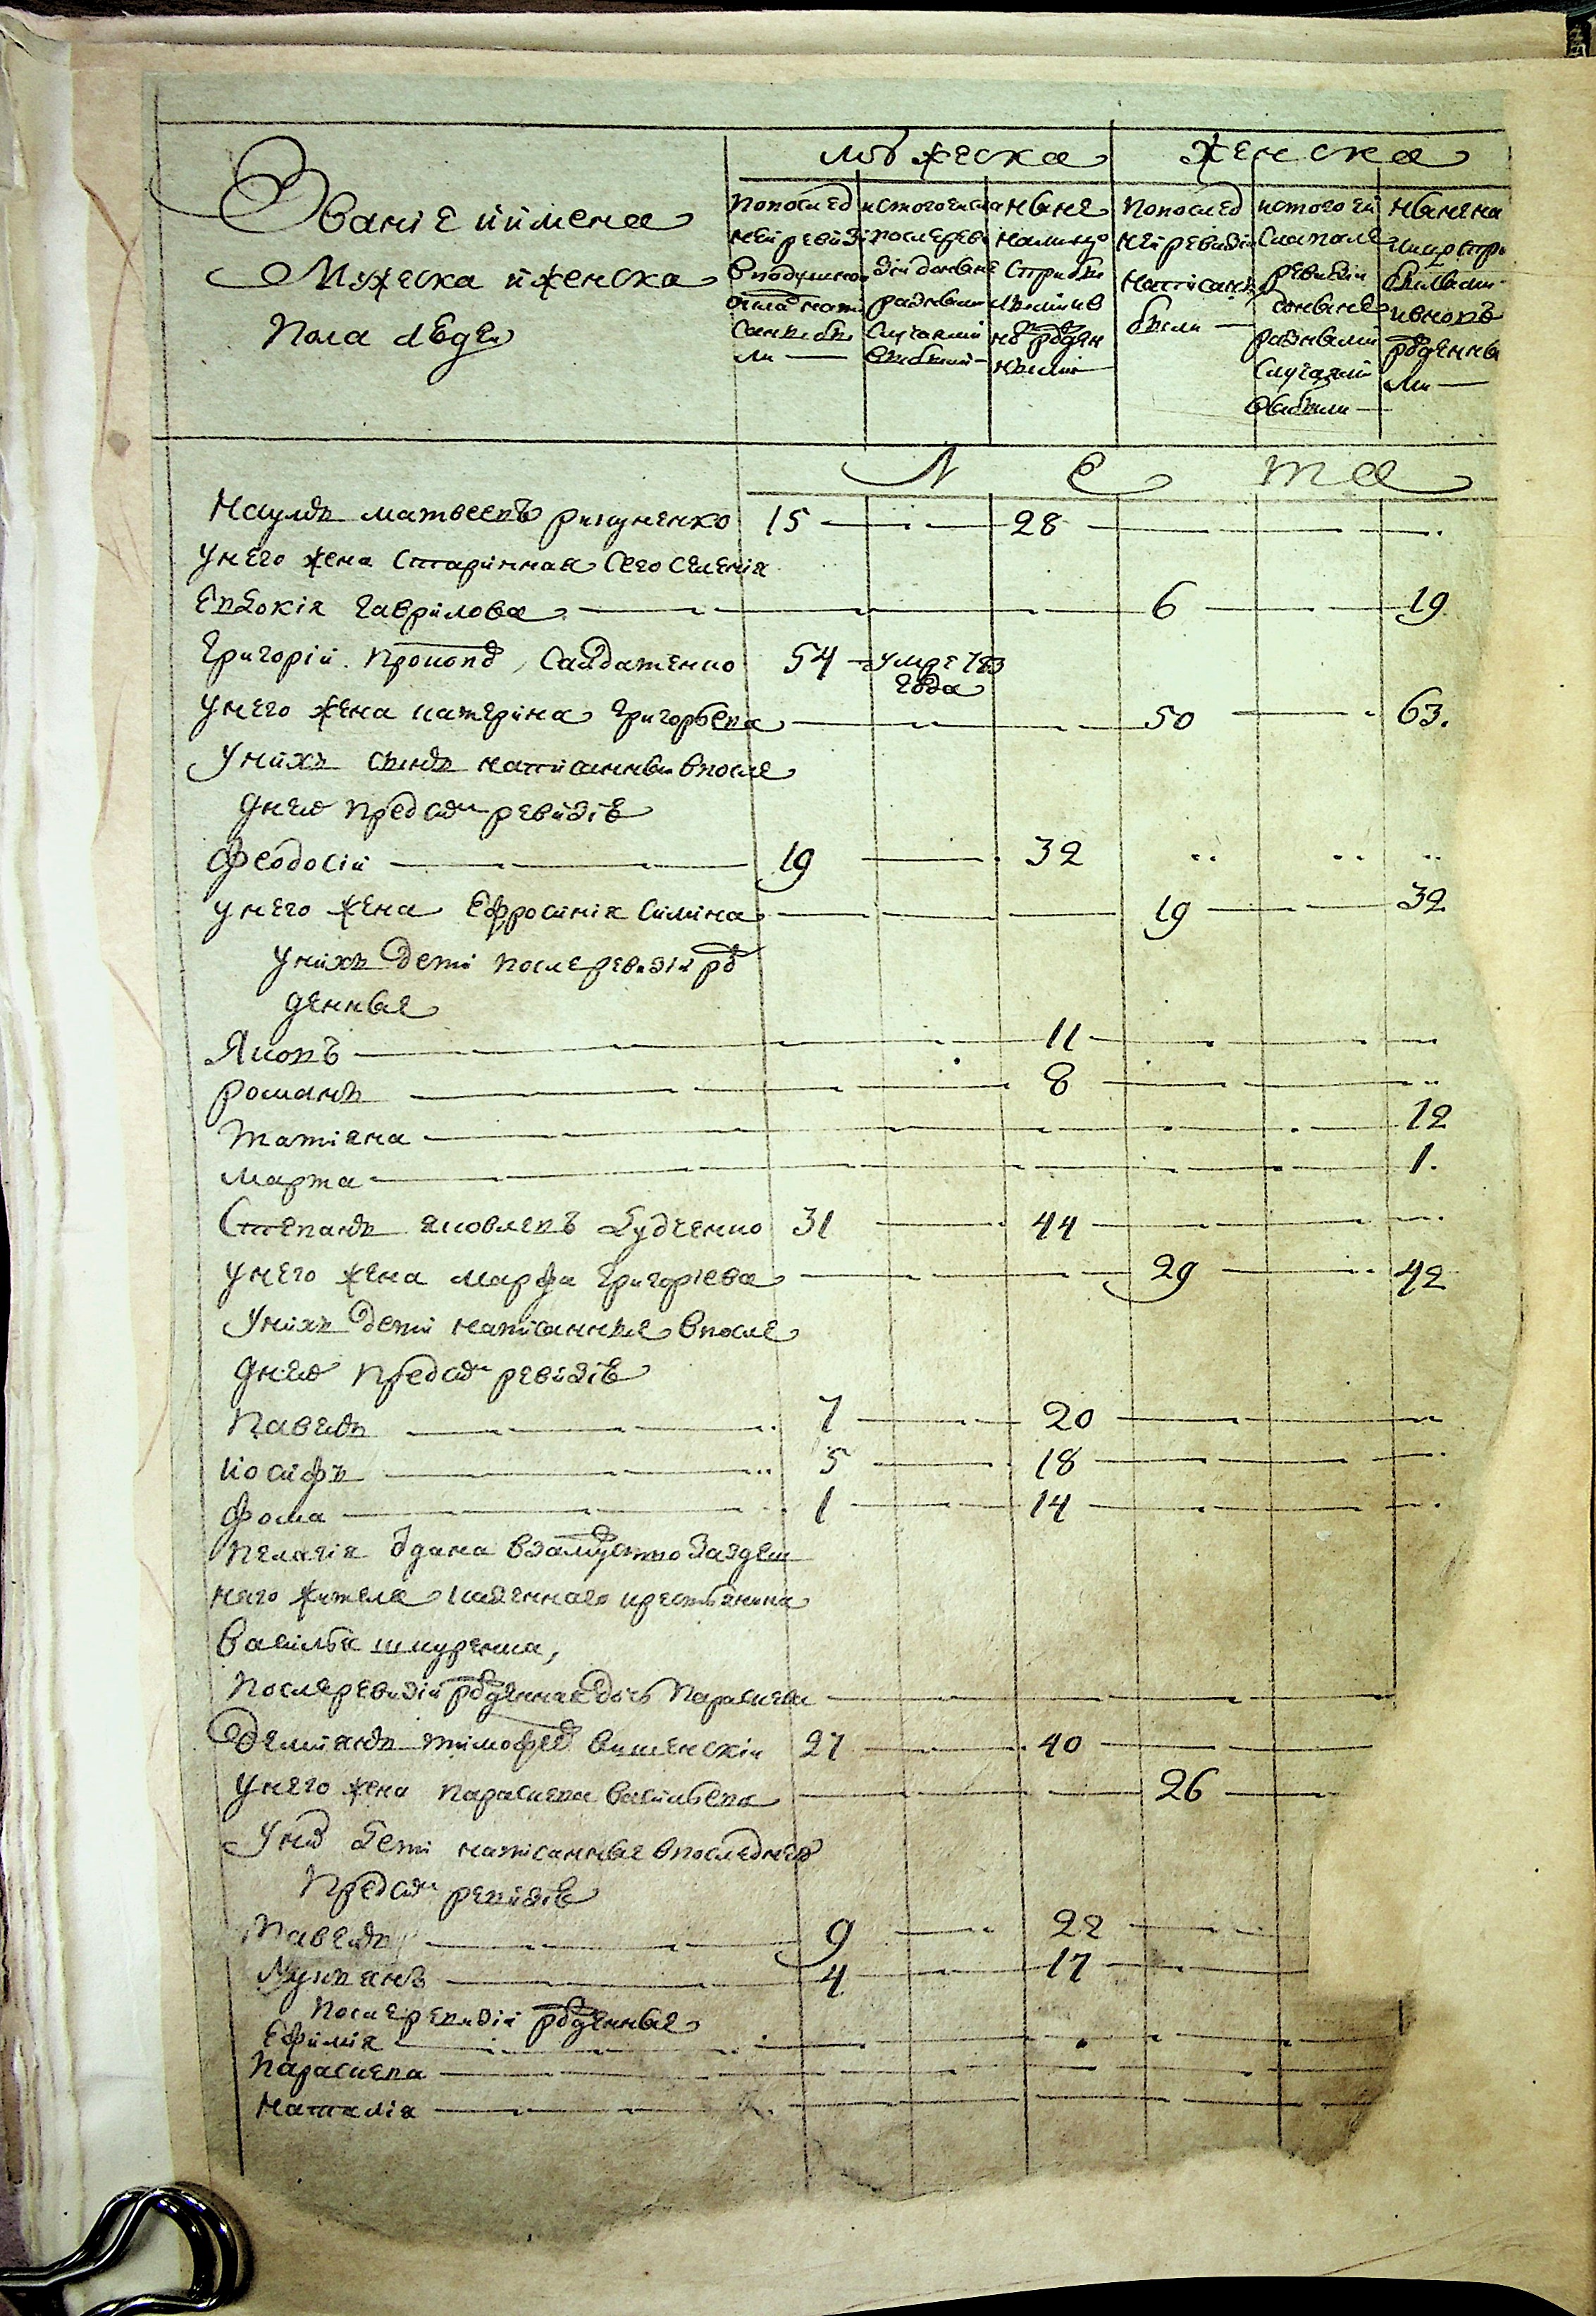 Званіе и имена
Мужеска и женска
Пола людей
мужеска
женска
по послед
ней ревизі
в подушно
оклад напи
саны бы
ли —
ис того числа
после реви
зіи до ныне
разными
случаями
выбыли —
ныне на
лицо
с прибы
лыми и в
новь рожден
ными
по послед
ней ревизіи
написаны
были —
ис того чи
сла после
ревизіи
до ныне
разными
случаями
выбыли —
ныне на
лицо с при
былыми
и вновь
рожденны
ми —
Л е т а
Наумъ Матвеевъ 15 28
у него жена старинная сего селенія
Евдокія Гаврилова 6 19
Григорій Прокоп Сайдаченко 54 умре 783
года
у него жена Катерина Григорьева 50 63.
у нихъ сынъ написанный в после
дней пред сим ревизіи
Феодосій 19 32
у него жена Ефросинія Симина 19 32
у нихъ дети после ревизіи рож
денные
Яковъ 11
Романъ 8
Татіяна 12
Марта 1.
Степанъ Яковлевъ Дудченко 31 44
у него жена Марфа Григоріева 29 42
у нихъ дети написанные в после
дней пред сим ревизіи
Павелъ 7 20
Іосифъ 5 18
Фома 1 14
Пелагія одана в замужство за здеш
няго жителя казенного крестьянина
Василья Шкуренка,
после ревизіи рожденная дочь Параскева
Деміянъ Тимофеев Вишенскій 27 40
у него жена Параскева Васильева 26
у них дети написанные в последней
пред сим ревизіи
Павелъ 9 22
Лукянъ 4 17
после ревизіи рожденные
Ефимія
Параскева
Наталія